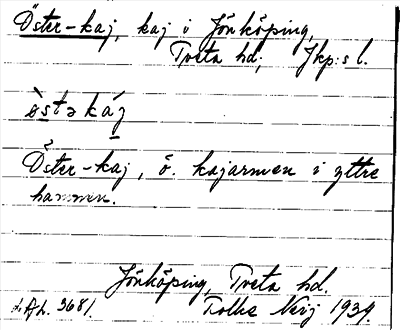 Öster-kaj, kaj i Jönköping,
Tveta hd; Jkp:s l.
òstəkáj
Öster-kaj, ö. kajarmen i yttre
hamnen.
Jönköping, Tveta hd.
3681. Folke 1934.